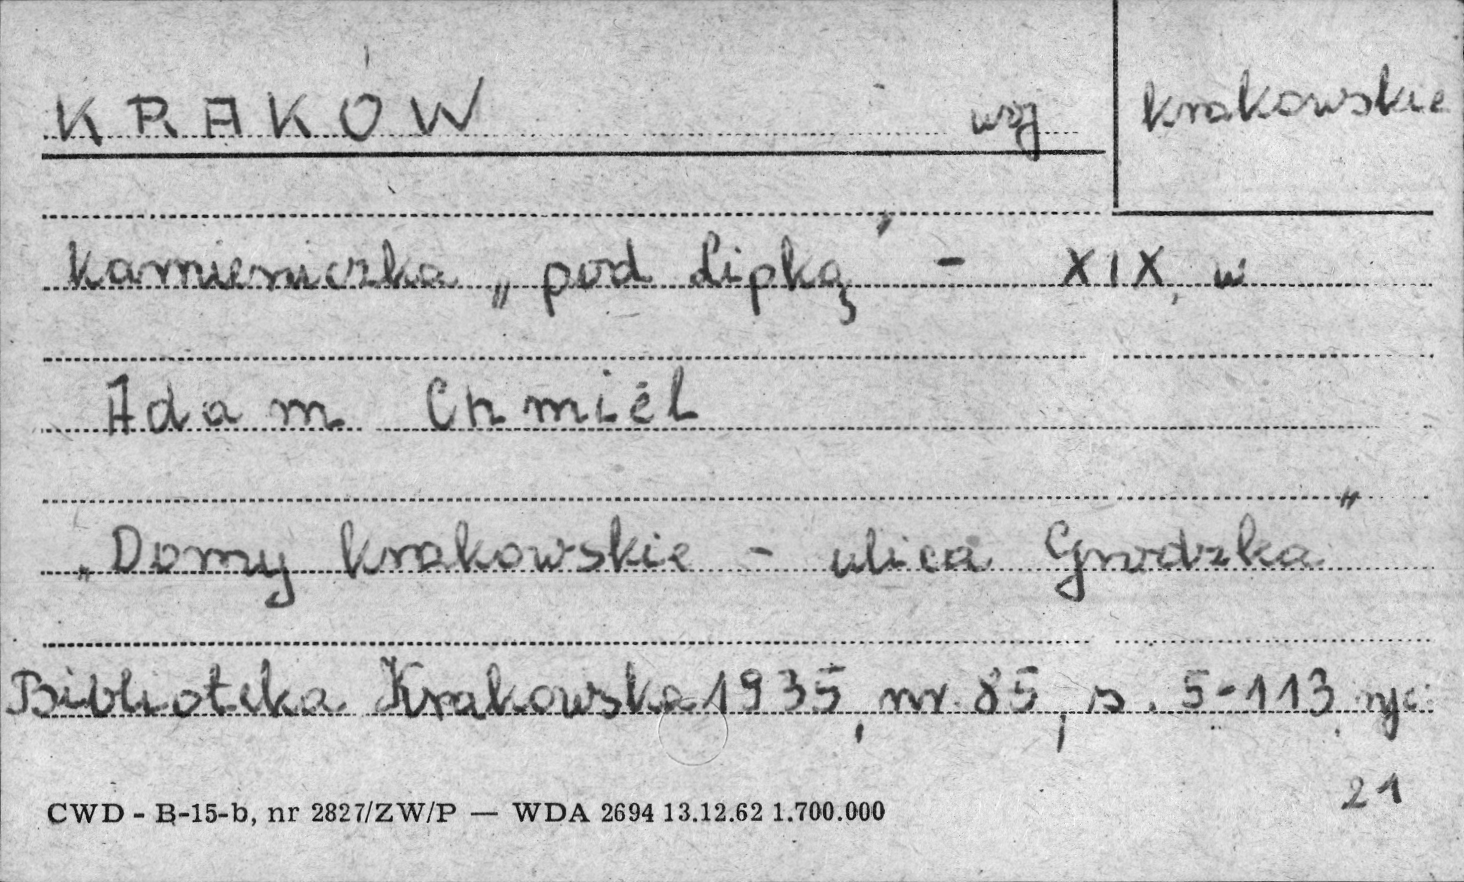 KRAKÓW woj krakowskie
Kamieniczka „pod Lipką" - XIX, w
Adam Chmiel
„Domy krakowskie - ulica Grodzka"
Biblioteka Krakowska 1935, nr. 85, s. 5-113, ryc.
21
CWD - B-15-b, nr 2827/ZW/P — WDA 2694 13.12.62 1.700.000